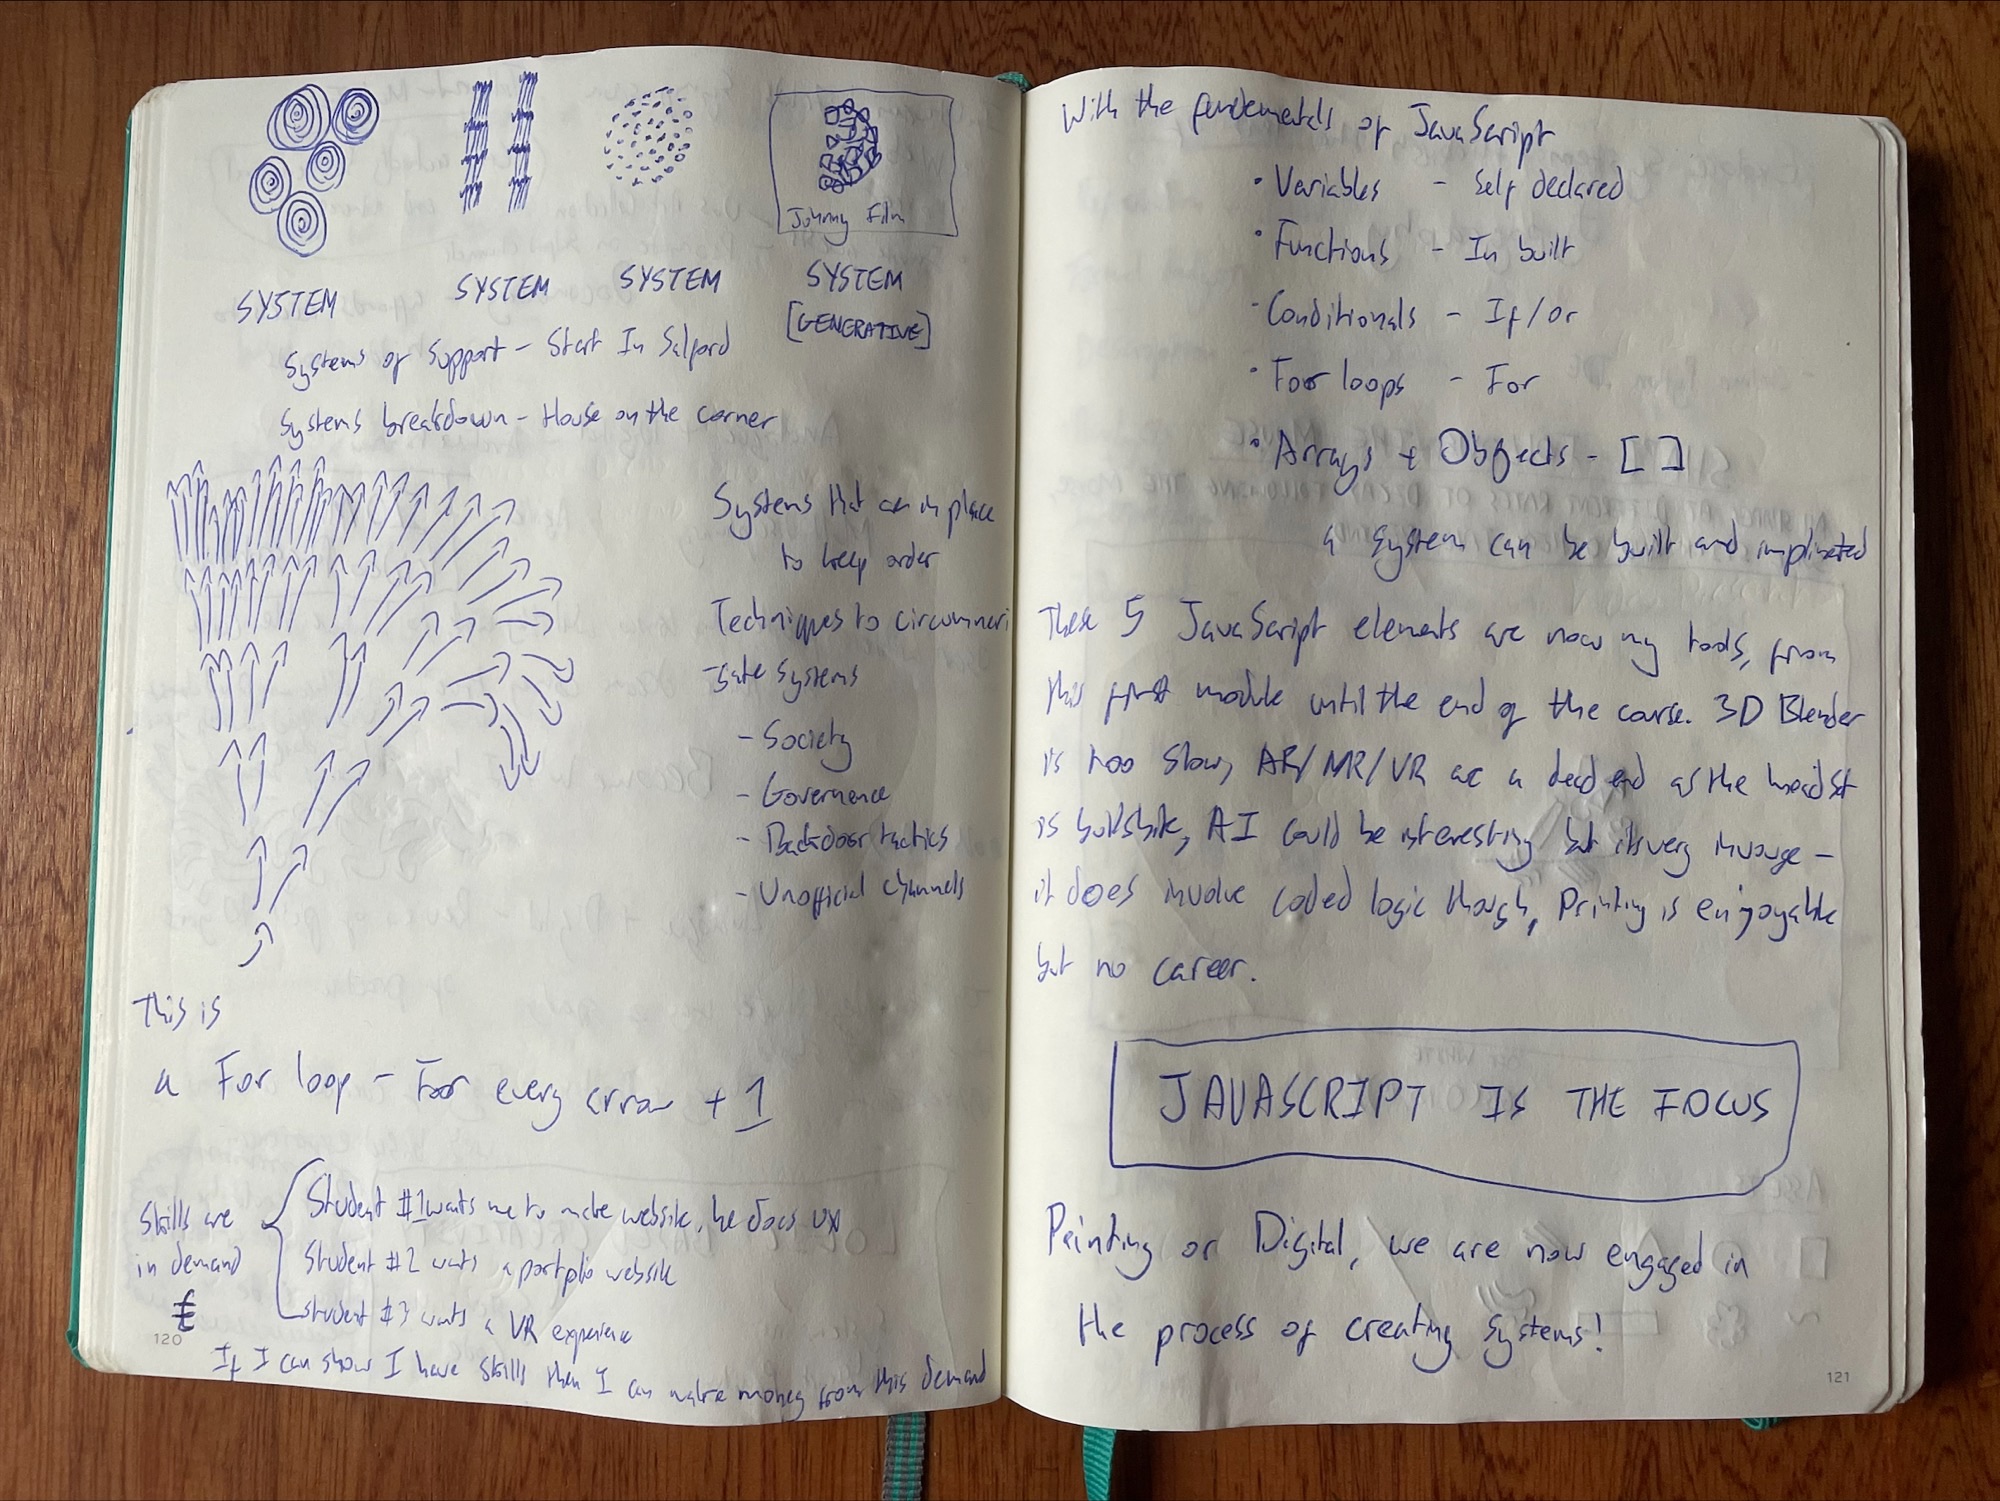 Johnny Film
SYSTEM SYSTEM SYSTEM SYSTEM
[GENERATIVE]
Systems of Support - Start In Salford
Systems breakdown - House on the corner
Systems that are in place
to keep order
Techniques to
Systems
- Society
- Governence
- Backdoor tactics
- Unofficial channels
This is
a For loop - For every arrow + 1
Skills are
in demand
£
Student #1 wants me to make website, he does UX
Student #2 wants a portfolio website
Student #3 wants a VR experience
If I can show I have skills then I can make money from this demand
120
With the fundementals of JavaScript
• Variables - Self declared
• Functions - In built
• Conditionals - If/or
• For loops - For
• Arrays + Objects - [ ]
a system can be built and
These 5 JavaScript elements are now my tools, from
this first module until the end of the course. 3D Blender
is too slow, AR/MR/VR are a dead end as the headset
is, AI could be interesting but its very -
it does involve coded logic though, Printing is enjoyable
but no career.
JAVASCRIPT IS THE FOCUS
Painting or Digital, we are now engaged in
the process of creating systems!
121